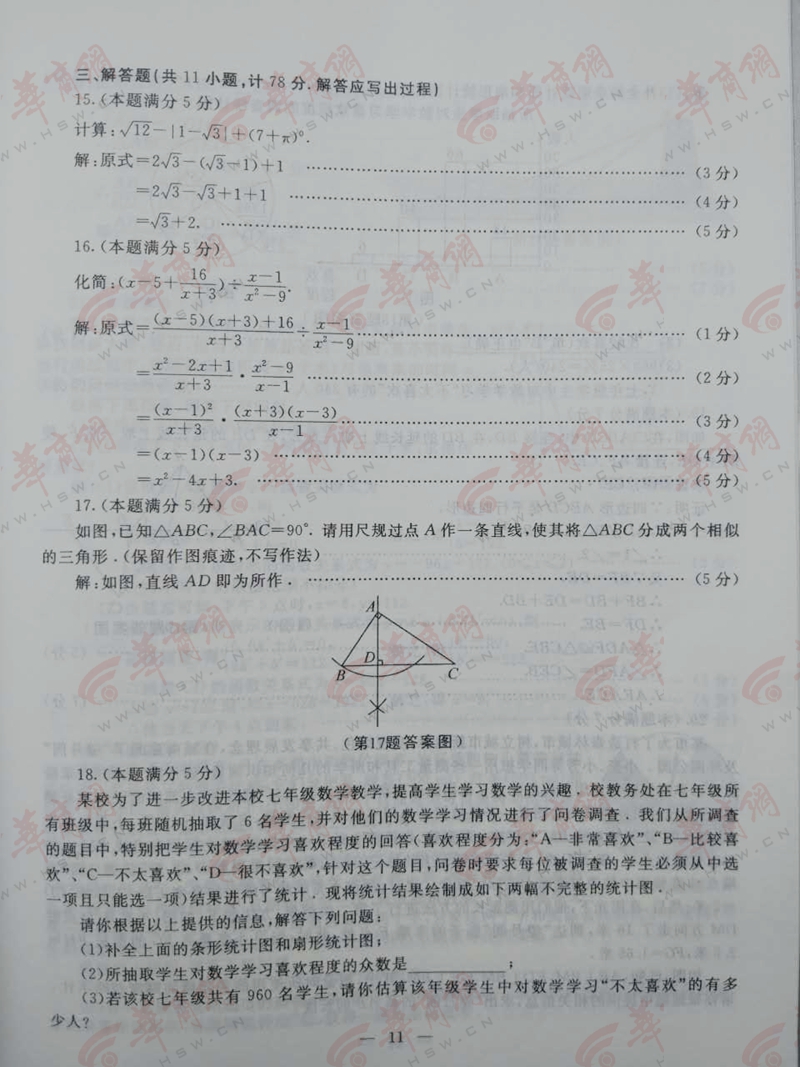 三、解答题(共 11 小题,计 78 分.解答应写出过程)
15.(本题满分 5 分)
计算:√12-|1-√3|+(7+π)⁰.
解:原式=2√3-(√3-1)+1 ……(3 分)
=2√3-√3+1+1 ……(4 分)
=√3+2. ……(5 分)
16.(本题满分 5 分)
化简:(x-5+16/(x+3))÷(x-1)/(x²-9).
解:原式=((x-5)(x+3)+16)/(x+3)÷(x-1)/(x²-9) ……(1 分)
=(x²-2x+1)/(x+3)·(x²-9)/(x-1) ……(2 分)
=(x-1)²/(x+3)·(x+3)(x-3)/(x-1) ……(3 分)
=(x-1)(x-3) ……(4 分)
=x²-4x+3. ……(5 分)
17.(本题满分 5 分)
如图,已知△ABC,∠BAC=90°. 请用尺规过点 A 作一条直线,使其将△ABC 分成两个相似
的三角形.(保留作图痕迹,不写作法)
解:如图,直线 AD 即为所作. ……(5 分)
A
D
B
C
(第17题答案图)
18.(本题满分 5 分)
某校为了进一步改进本校七年级数学教学,提高学生学习数学的兴趣.校教务处在七年级所
有班级中,每班随机抽取了 6 名学生,并对他们的数学学习情况进行了问卷调查.我们从所调查
的题目中,特别把学生对数学学习喜欢程度的回答(喜欢程度分为:“A—非常喜欢”、“B—比较喜
欢”、“C—不太喜欢”、“D—很不喜欢”,针对这个题目,问卷时要求每位被调查的学生必须从中选
一项且只能选一项)结果进行了统计.现将统计结果绘制成如下两幅不完整的统计图.
请你根据以上提供的信息,解答下列问题:
(1)补全上面的条形统计图和扇形统计图;
(2)所抽取学生对数学学习喜欢程度的众数是________;
(3)若该校七年级共有 960 名学生,请你估算该年级学生中对数学学习“不太喜欢”的有多
少人?
— 11 —
华商网
WWW.HSW.CN